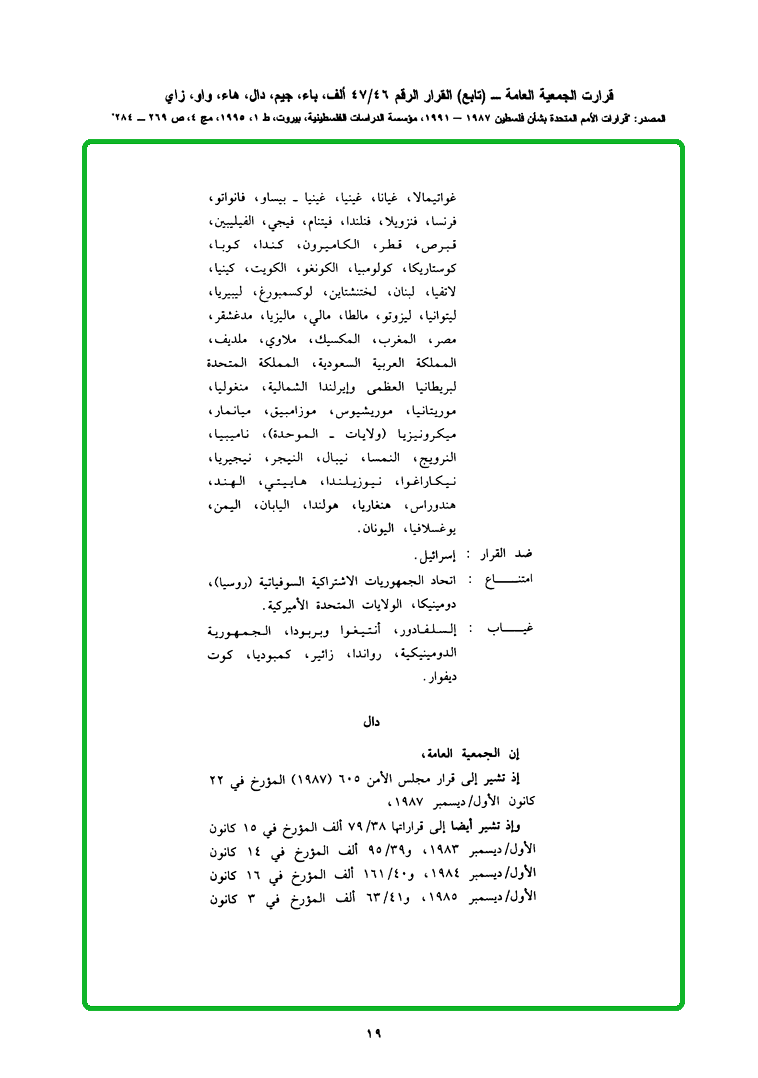 قرارت الجمعية العامة ــ (تابع) القرار الرقم ٤٧/٤٦ ألف، باء، جيم، دال، هاء، واو، زاي
المصدر: "قرارات الأمم المتحدة بشأن فلسطين ١٩٨٧ – ١٩٩١، مؤسسة الدراسات الفلسطينية، بيروت، ط ١، ١٩٩٥، مج ٤، ص ٢٦٩ ــ ٢٨٤"
غواتيمالا، غيانا، غينيا، غينيا ـ بيساو، فانواتو،
فرنسا، فنزويلا، فنلندا، فيتنام، فيجي، الفيليبين،
قبرص، قطر، الكاميرون، كندا، كوبا،
كوستاريكا، كولومبيا، الكونغو، الكويت، كينيا،
لاتفيا، لبنان، لختنشتاين، لوكسمبورغ، ليبيريا،
ليتوانيا، ليزوتو، مالطا، مالي، ماليزيا، مدغشقر،
مصر، المغرب، المكسيك، ملاوي، ملديف،
المملكة العربية السعودية، المملكة المتحدة
لبريطانيا العظمى وإيرلندا الشمالية، منغوليا،
موريتانيا، موريشيوس، موزامبيق، ميانمار،
ميكرونيزيا (ولايات ـ الموحدة)، ناميبيا،
النرويج، النمسا، نيبال، النيجر، نيجيريا،
نيكاراغوا، نيوزيلندا، هاييتي، الهند،
هندوراس، هنغاريا، هولندا، اليابان، اليمن،
يوغسلافيا، اليونان.
ضد القرار : إسرائيل.
امتنـــــاع : اتحاد الجمهوريات الاشتراكية السوفياتية (روسيا)،
دومينيكا، الولايات المتحدة الأميركية.
غيـــــاب : إلسلفادور، أنتيغوا وبربودا، الجمهورية
الدومينيكية، رواندا، زائير، كمبوديا، كوت
ديفوار.
دال
إن الجمعية العامة،
إذ تشير إلى قرار مجلس الأمن ٦٠٥ (١٩٨٧) المؤرخ في ٢٢
كانون الأول/ديسمبر ١٩٨٧،
وإذ تشير أيضا إلى قراراتها ٧٩/٣٨ ألف المؤرخ في ١٥ كانون
الأول/ديسمبر ١٩٨٣، و٩٥/٣٩ ألف المؤرخ في ١٤ كانون
الأول/ديسمبر ١٩٨٤، و١٦١/٤٠ ألف المؤرخ في ١٦ كانون
الأول/ديسمبر ١٩٨٥، و٦٣/٤١ ألف المؤرخ في ٣ كانون
١٩